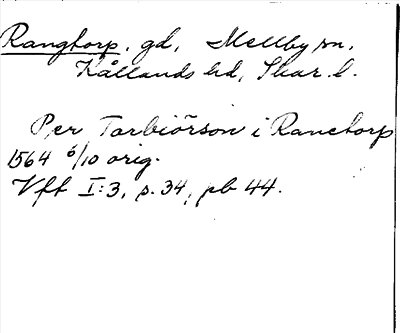 Rangtorp, gd, Mellby sn,
Kållands hd, Skar. l.
Per Torbiörson i Ranetorp
1564 6/10 orig.
Vft I:3, s. 34, pb 44.